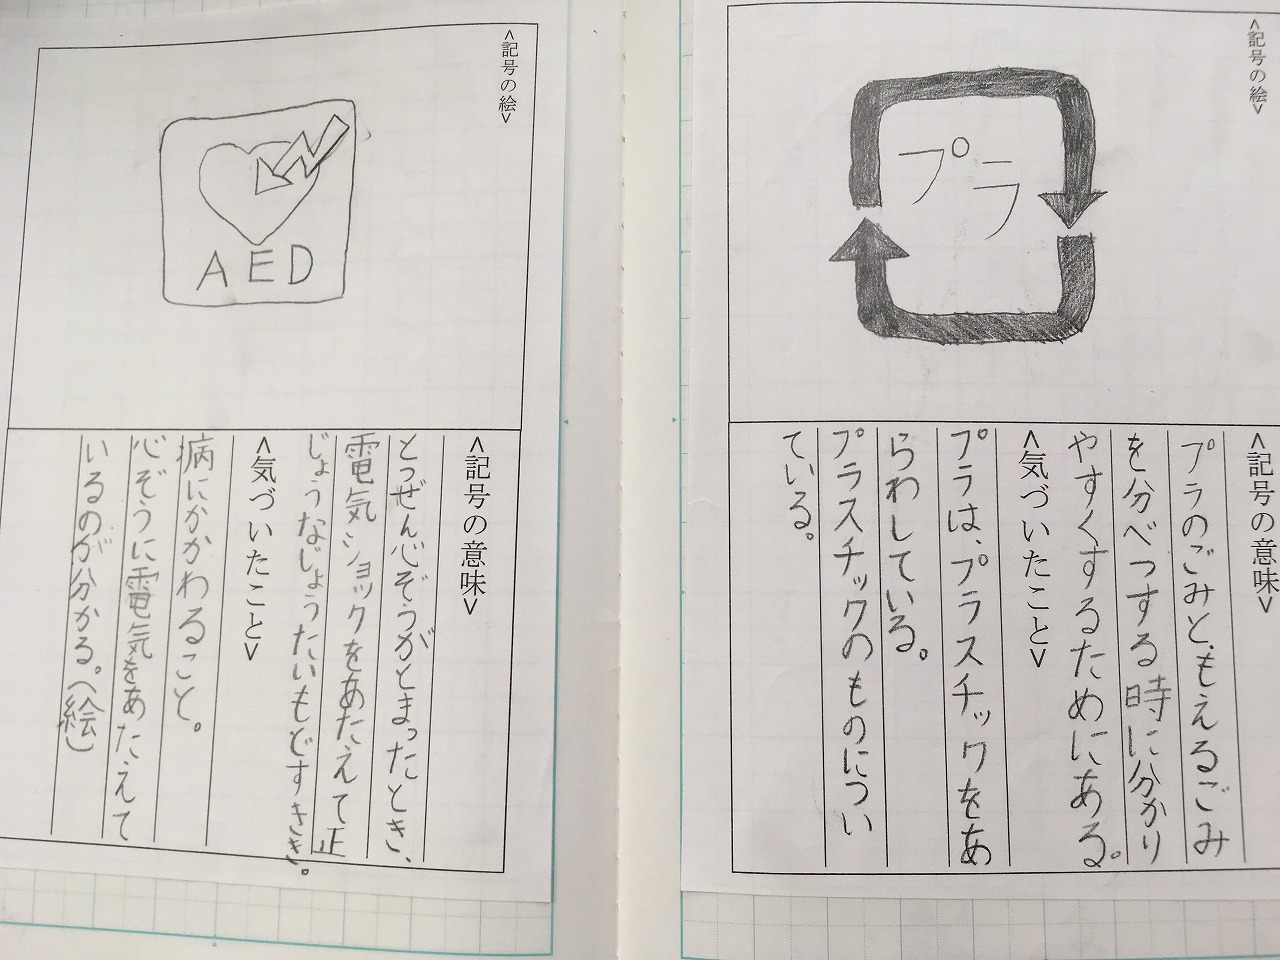 <記号の絵>
プラ
<記号の意味>
プラのごみと、もえるごみ
を分べつする時に分かり
やすくするためにある。
<気づいたこと>
プラは、プラスチックをあ
らわしている。
プラスチックのものについ
ている。
<記号の絵>
AED
<記号の意味>
とつぜん心ぞうがとまったとき、
電気ショックをあたえて正
じょうなじょうたいもどすきき。
<気づいたこと>
病にかかわること。
心ぞうに電気をあたえて
いるのが分かる。(絵)